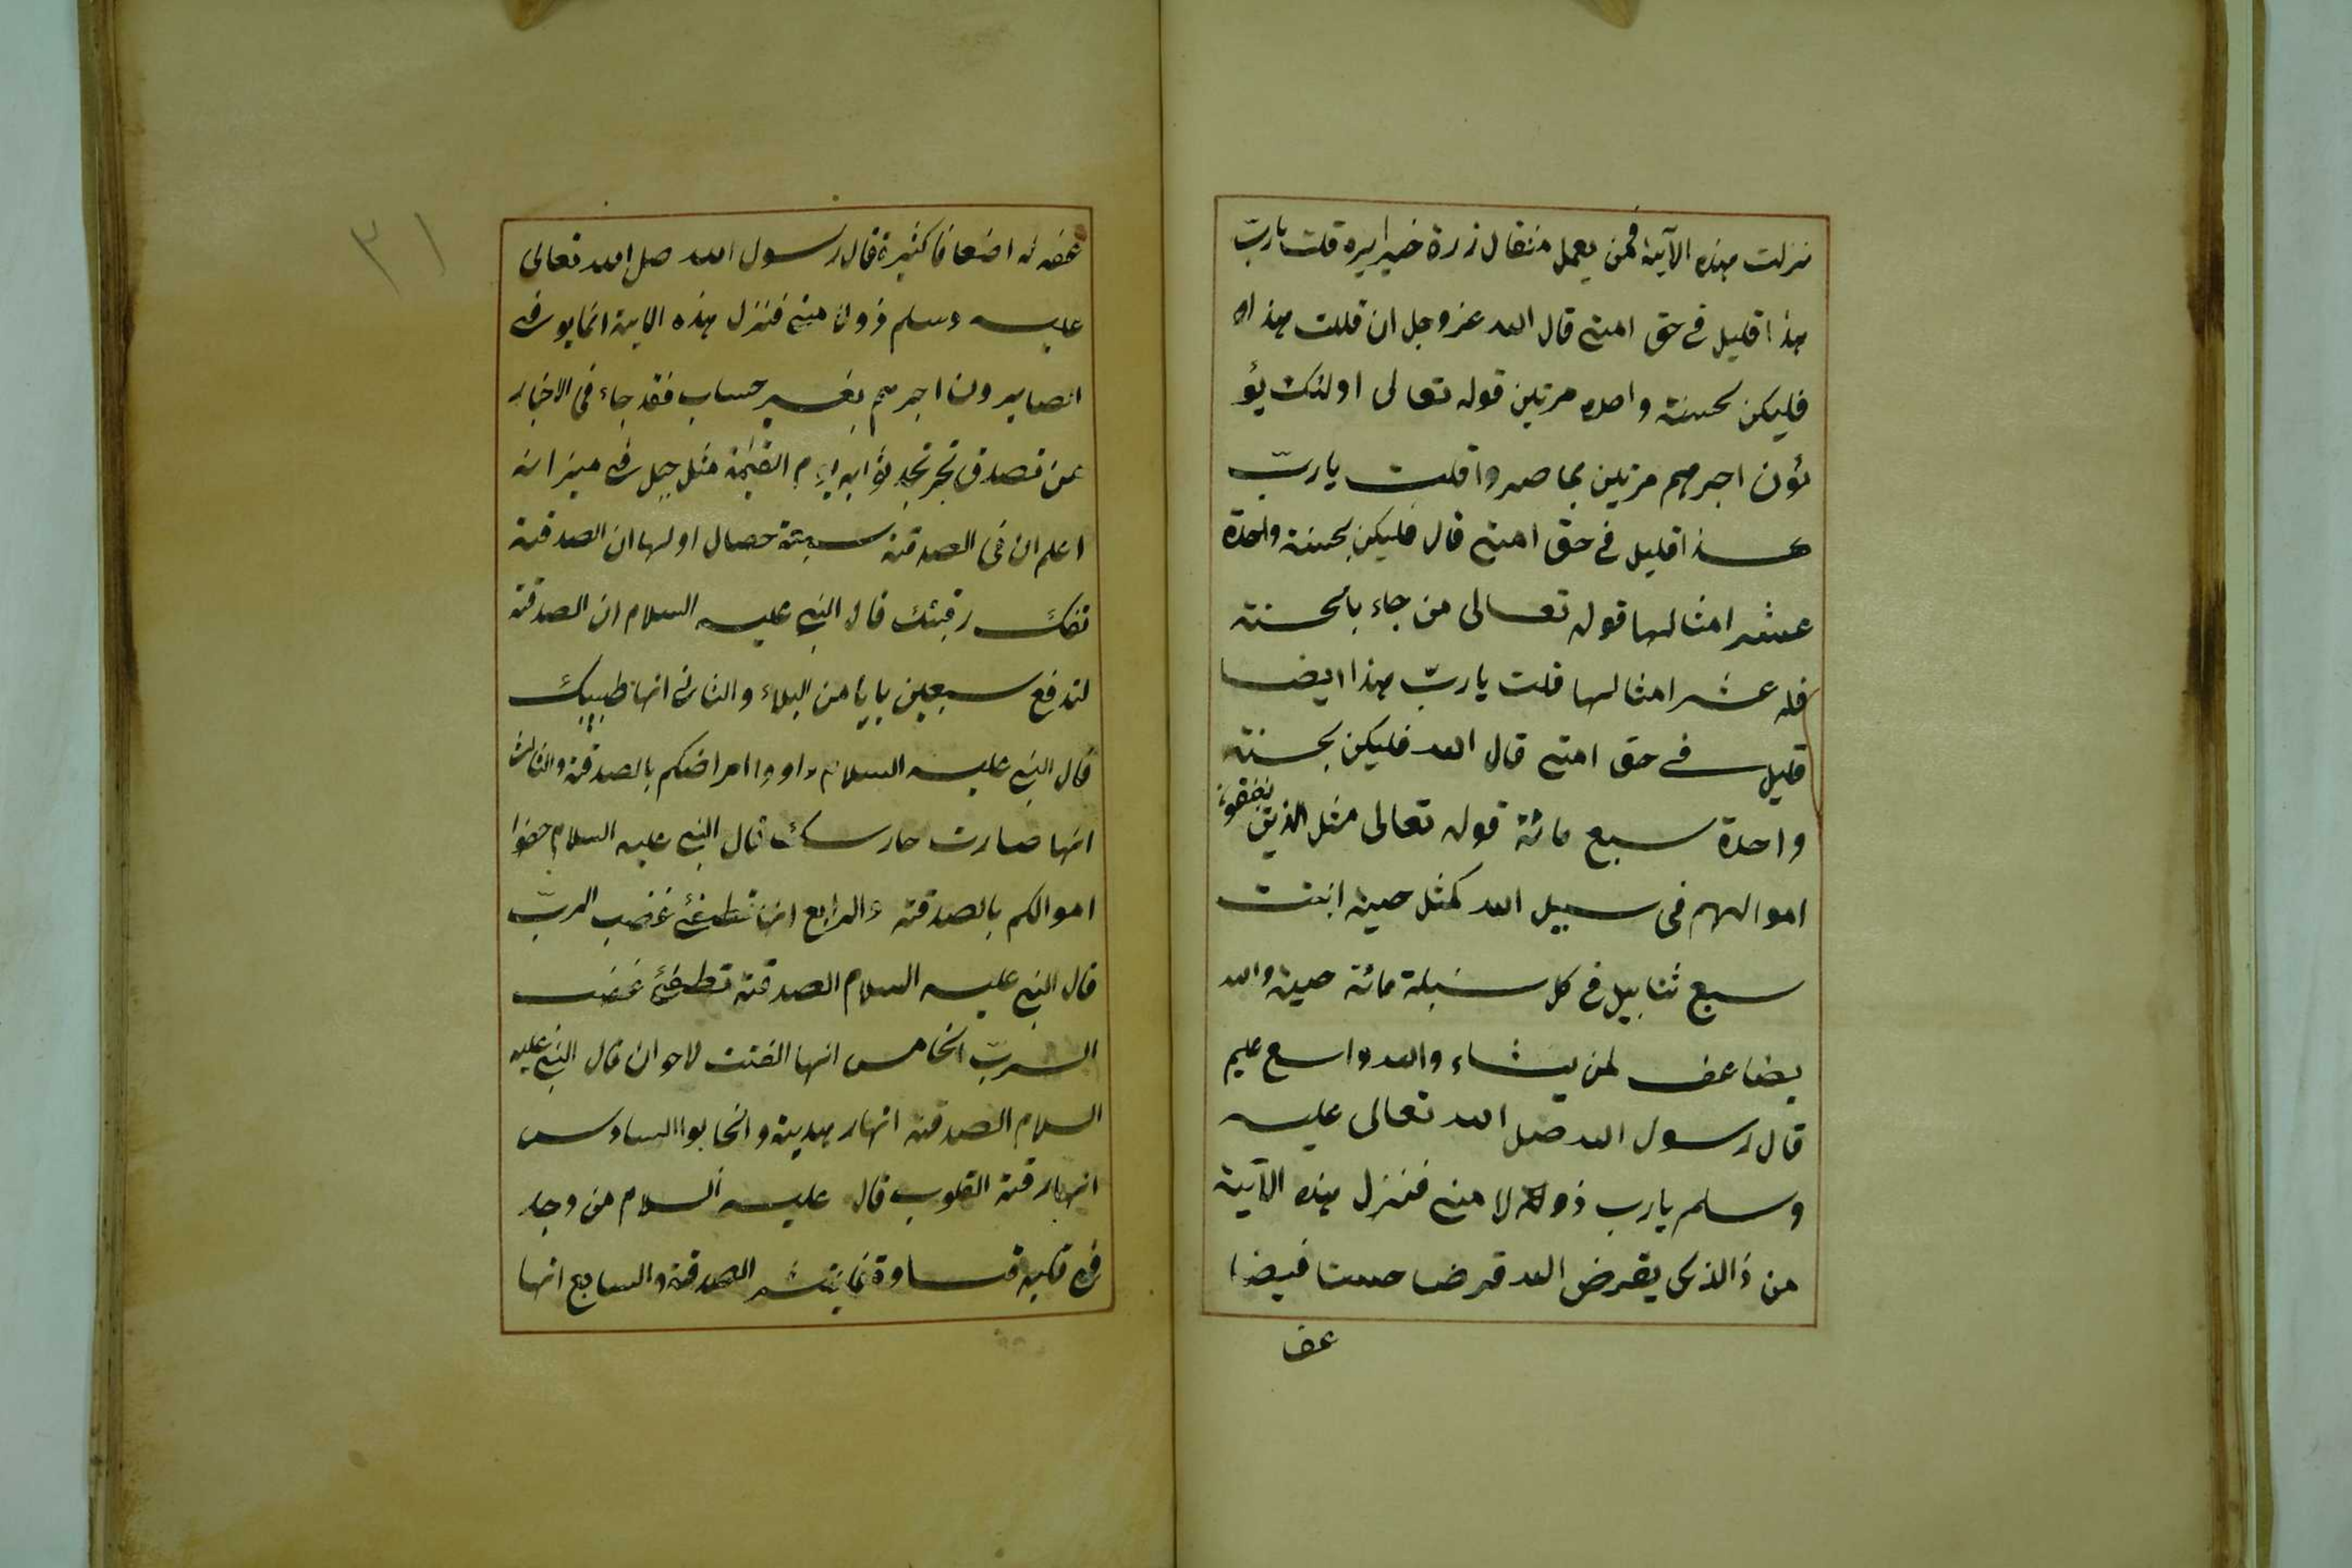 نزلت هذه الآية فمن يعمل مثقال زرة خيرايره قلت يارب
هذا قليل في حق امتي قال الله عزوجل ان قللت هذاه
فليكن لحسنة واحده مرتين قوله تعالى اولئك يؤ
تؤن اجرهم مرتين بما صبروا قلت يارب
هذا قليل في حق امتي قال فليكن بحسنة واحدة
عشر امثالها قوله تعالى من جاء بالحسنة
فله عشر امثالها قلت يارب هذا ايضا
قليل في حق امتي قال الله فليكن بحسنة
واحدة سبع مائة قوله تعالى مثل الذين ينفقون
اموالهم في سبيل الله كمثل حبة انبتت
سبع ثنابيل في كل سنبلة مائة حبة والله
يضاعف لمن يشاء والله واسع عليم
قال رسول الله صلى الله تعالى عليه
وسلم يارب لامتي فنزل هذه الآية
من ذالذى يقرض الله قرضا حسنا فيضا
عف
عفه له اضعافا كثيرة قال رسول الله صلى الله تعالى
عليه وسلم فنزل هذه الاية انما يوفى
الصابرون اجرهم بغير حساب فقد جاء في الاخبار
عن تصدق ثوابه يوم القيمة مثل جبل في ميزانه
اعلم ان في الصدقة سبعة خصال اولها ان الصدقة
تفك رقبتك قال النبي عليه السلام ان الصدقة
لتدفع سبعين بابا من البلاء والثاني انها طبيبك
قال النبي عليه السلام داووا امراضكم بالصدقة والثالث
انها صارت حارسك قال النبي عليه السلام حضوا
اموالكم بالصدقة والرابع انها تطفئ غضب الرب
قال النبي عليه السلام الصدقة تطفئ غضب
الرب الخامس انها الفتت لاحوان قال النبي عليه
السلام الصدقة انهار هدية وانحابوا السادس
انهارقة القلوب قال عليه السلام من وجد
في قلبه قساوة الصدقة والسابع انها
٣١